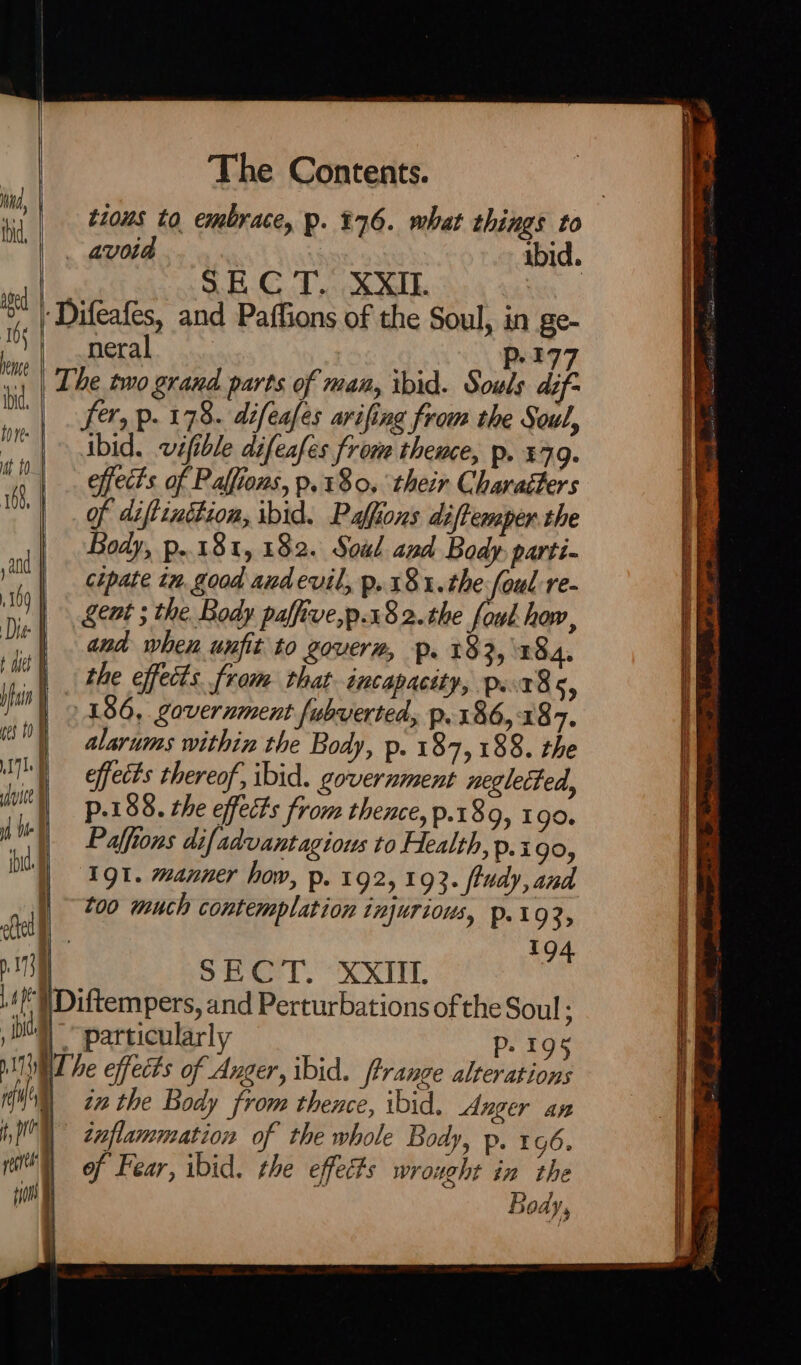 The Contents.
tions to embrace, p. 176. what things to
avoid ibid.
SECT. XXII.
Difeafes, and Paffions of the Soul, in ge-
neral p. 177
The two grand parts of man, ibid. Souls dif-
fer, p. 178. difeafes arifing from the Soul,
ibid. vifible difeafes from thence, p. 179.
effects of Paffions, p. 180. their Characters
of diftinction, ibid. Paffions diftemper the
Body, p. 181, 182. Soul and Body parti-
cipate in good and evil, p. 181. the foul re-
gent ; the Body paffive, p. 182. the foul how,
and when unfit to govern, p. 183, 184.
the effects from that incapacity, p. 185,
186, government fubverted, p. 186, 187.
alarums within the Body, p. 187, 188. the
effects thereof, ibid. government neglected,
p. 188. the effects from thence, p. 189, 190.
Paffions difadvantagious to Health, p. 190,
191. manner how, p. 192, 193. ftudy, and
too much contemplation injurious, p. 193,
194
SECT. XXIII.
Diftempers, and Perturbations of the Soul ;
particularly p. 195
The effects of Anger, ibid. ftrange alterations
in the Body from thence, ibid. Anger an
inflammation of the whole Body, p. 196.
of Fear, ibid. the effects wrought in the
Body,